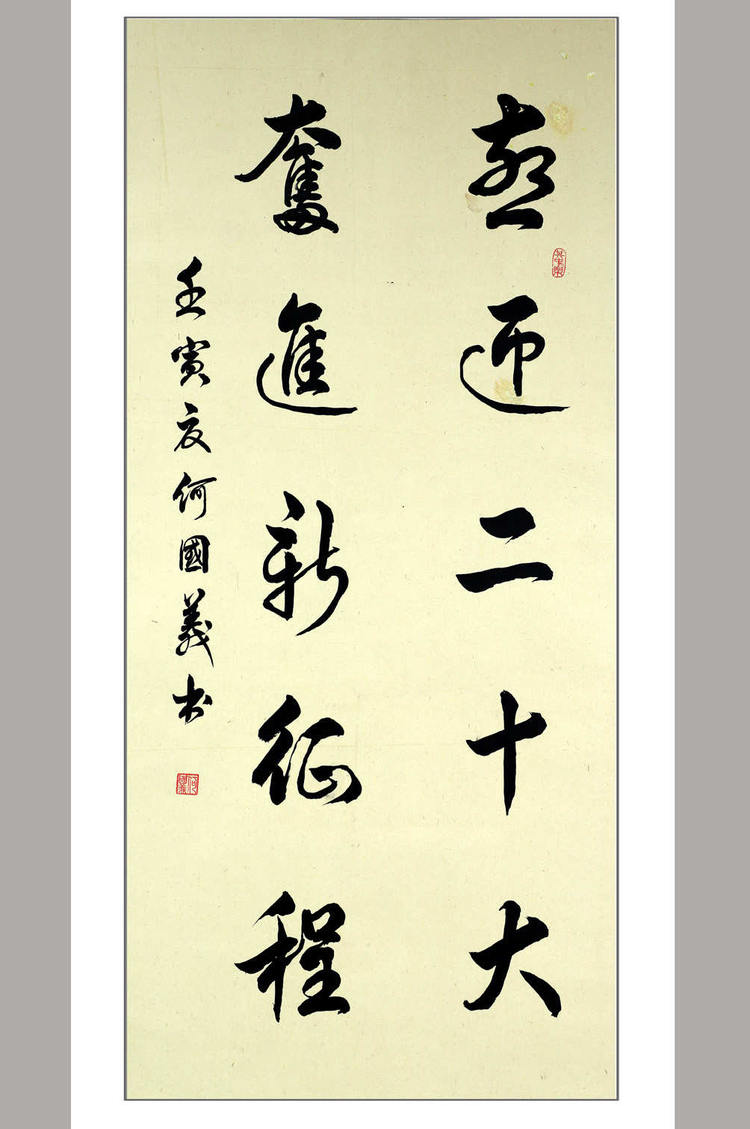 喜迎二十大
奮進新征程
壬寅夏何國義书